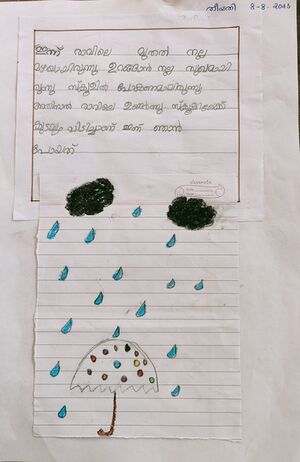 തീയതി 8-8-2023
ഇന്ന് രാവിലെ മുതൽ നല്ല
മഴയായിരുന്നു ഉറങ്ങാൻ നല്ല സുഖമായി
രുന്നു സ്കൂളിൽ പോകണമായിരുന്നു
അതിനാൽ രാവിലെ ഉണർന്നു സ്കൂളിലേക്ക്
കുടയും പിടിച്ചാണ് ഇന്ന് ഞാൻ
പോയത്
classmate